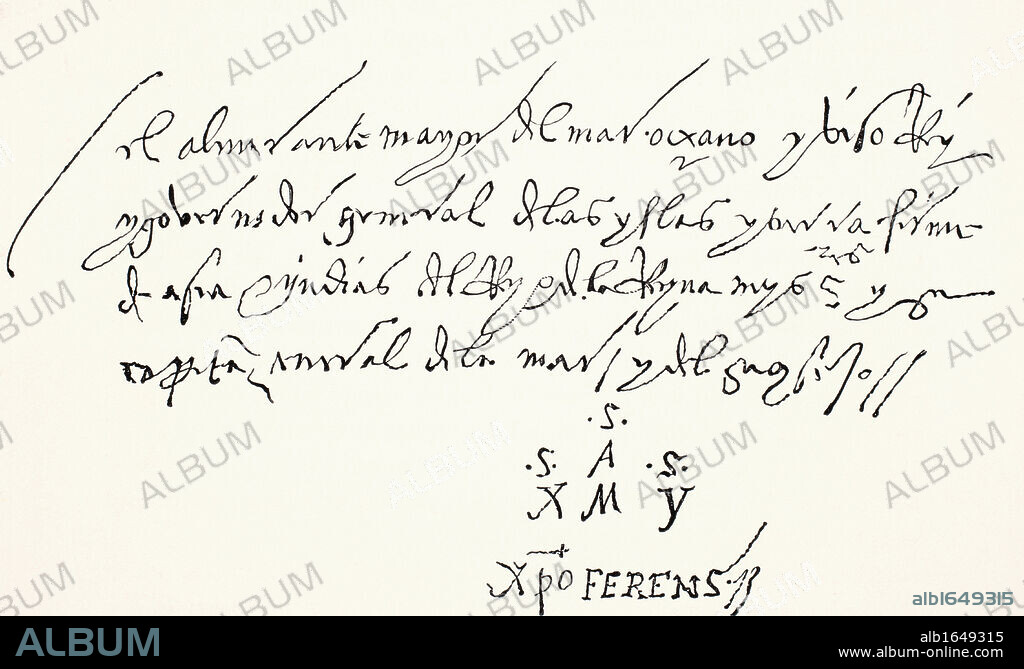 el almirante mayor del mar oçeano y viso Rey
y governador general de las yslas y tierra firme
de asia e yndias del Rey e de la Reyna mys S y su
capitan general de la mar y del
.S.
.S. A .S.
X M y
Xpo FERENS./
alb1649315
ALBUM
alb1649315
www.album-online.com